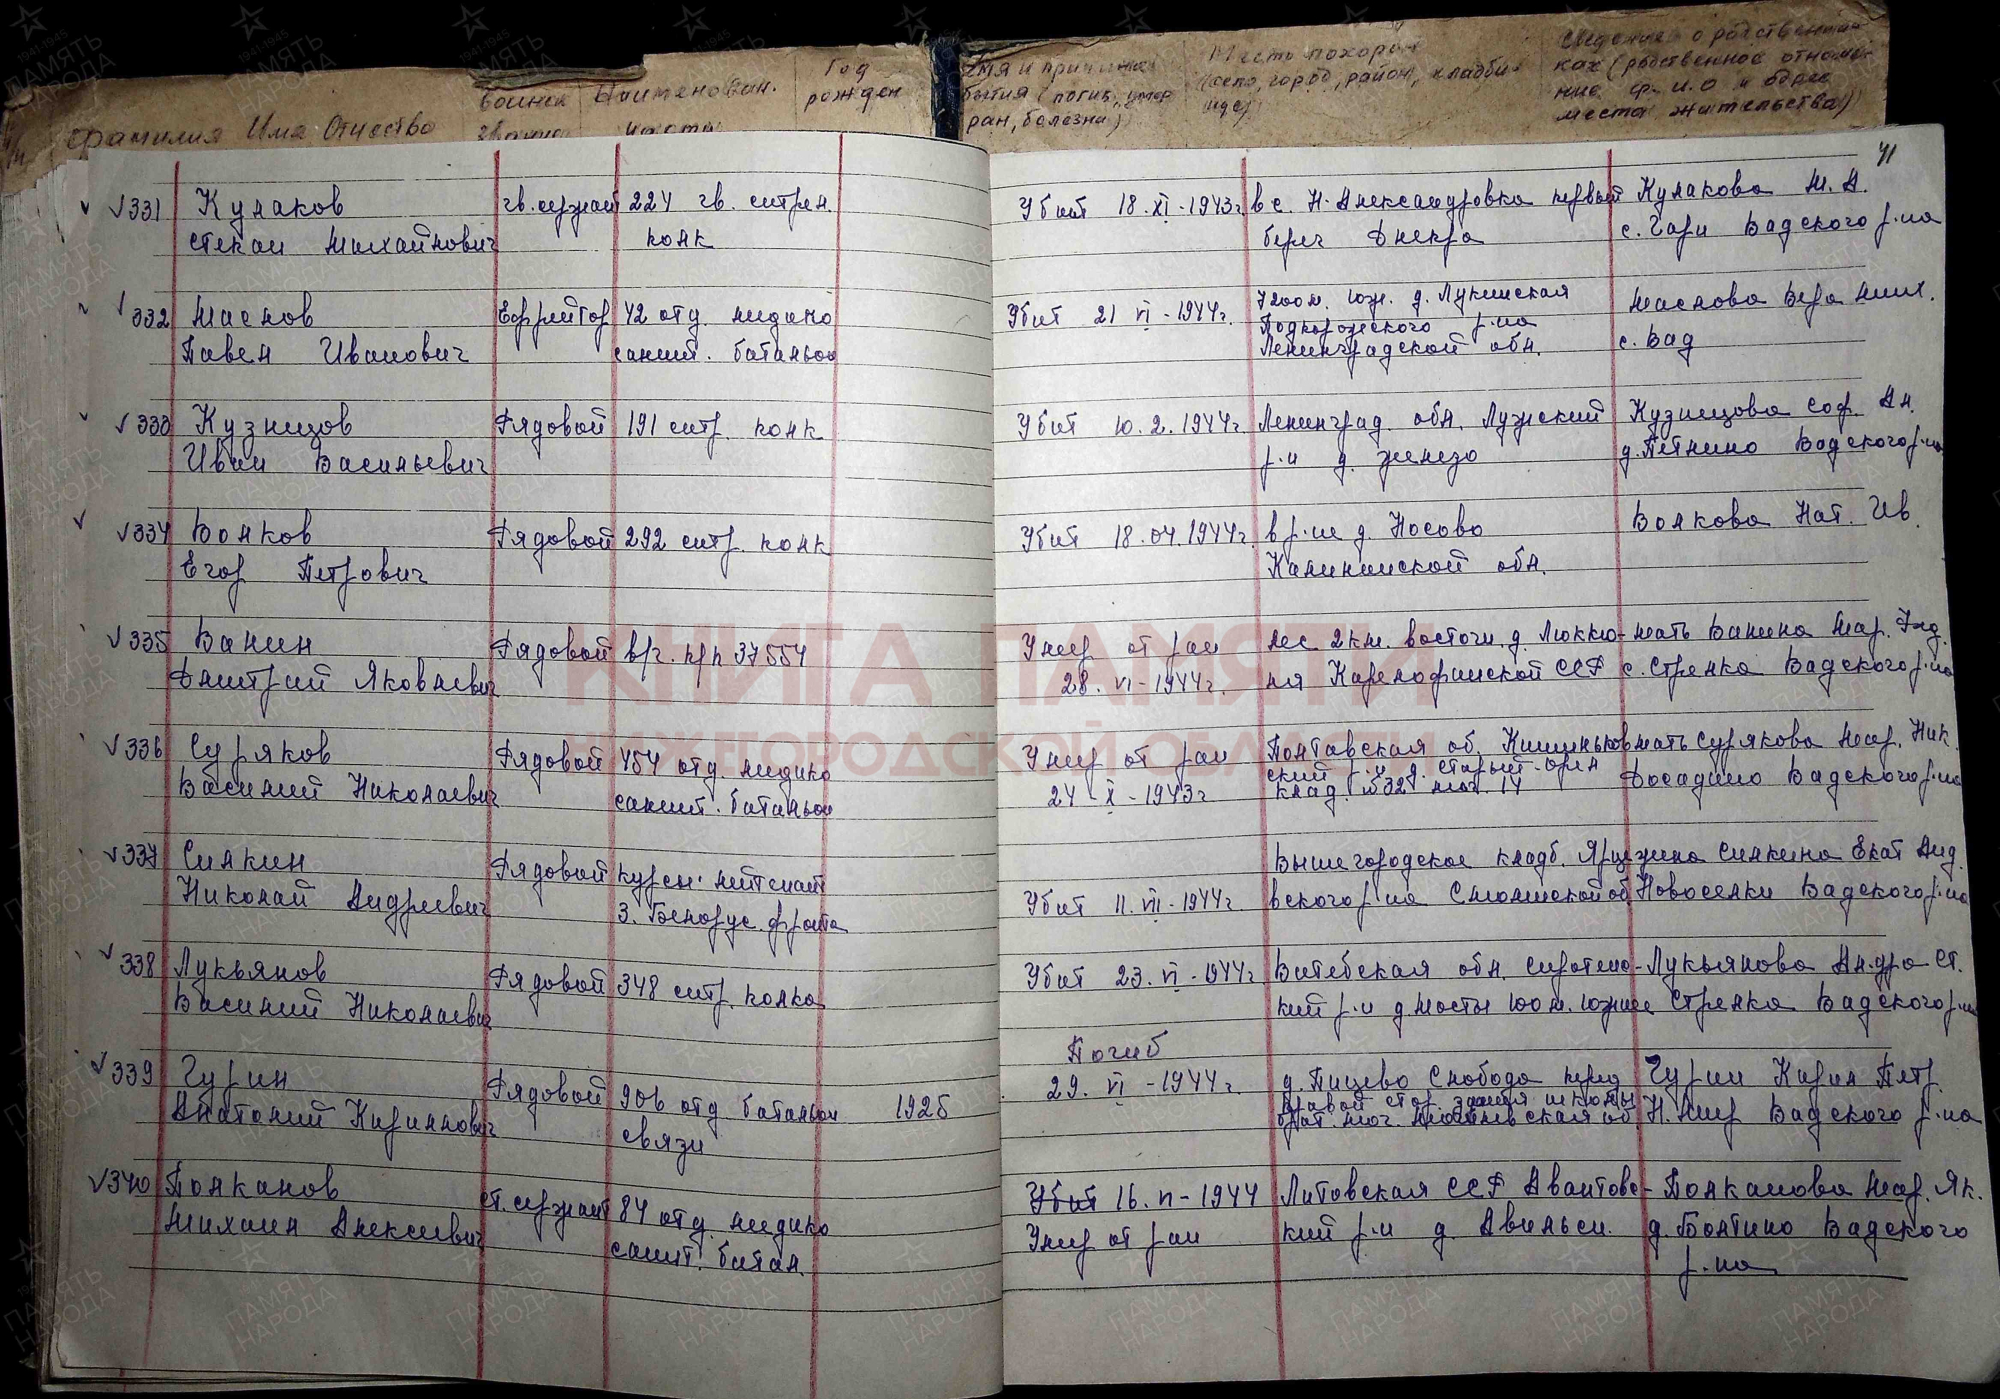 Фамилия Имя Отчество
воинск звание
Наименован. части
Год рожден
бытия (погиб, умер ран, болезни)
Место похорон
(село, город, район, кладбище)
сведения о родственниках (родственное отношение ф. и. о и адрес места жительства)
41
331 Кулаков гв. сержант 224 гв. стрел. Убит 18.XI-1943г. в с. Н-Александровка первый Кулакова М. А.
Степан Михайлович полк берег Днепра с. Гари Вадского р-на
332 Маслов Ефрейтор 42 отд. медико Убит 21 VI-1944г. 7200 м. юж. д. Лукинская Маслова Вера Мих.
Подпорожского р-на
Павел Иванович санит. батальон Ленинградской обл. с. Вад
333 Кузнецов Рядовой 191 стр. полк Убит 10.2.1944г. Ленинград. обл. Лужский Кузнецова Соф. Ал.
Иван Васильевич р-н д. Железо д. Петлино Вадского р-на
334 Волков Рядовой 292 стр. полк Убит 18.04.1944г. в р-не д. Носово Волкова Нат. Ив.
Егор Петрович Калининской обл.
335 Ванин Рядовой в/ч. п/п 37554 Умер от ран лес 2 км. восточн. д. Люккю- мать Ванина Мар.
Дмитрий Яковлевич 28.VI-1944г. ля Карелофинской ССР с. Стрелка Вадского р-на
336 Суряков Рядовой 454 отд. медико Умер от ран Полтавская об. Кишеньков мать Сурякова Мар. Ник.
ский р-н д. Старый-Орлик
Василий Николаевич санит. батальон 24-X-1943г клад. №32 мог. 14 Досадино Вадского р-на
337 Силкин Рядовой курсы лейтенант Вышегородское кладб. Ярце жена Силкина Екат Анд.
Николай Андреевич 3. Белорус. фронта Убит 11.VII-1944г вского р-на Смоленской об. Новоселки Вадского р-на
338 Лукьянов Рядовой 348 стр. полка Убит 23.VI-1944г. Витебская обл. Сиротин- Лукьянова Ал-дра Ст.
Василий Николаевич ский р-н д Мосты 100 м. южнее Стрелка Вадского р-на
Погиб
339 Гурин Рядовой 906 отд. батальон 1925 29.VI-1944г. д. Пищево Слобода перед Гурин Кирил Петр.
правой стор. здания школы
Анатолий Кириллович связи брат. мог. Могилевская об Н. Мир Вадского р-на
340 Полканов ст. сержант 84 отд. медико Убит 16. 1944 Литовская ССР Алантовс- Полканова Мар. Як.
Михаил Алексеевич санит. батал. Умер от ран кий р-н д. Авильси. д. Болтино Вадского
р-на
КНИГА ПАМЯТИ
НИЖЕГОРОДСКОЙ ОБЛАСТИ
1941-1945
ПАМЯТЬ
НАРОДА